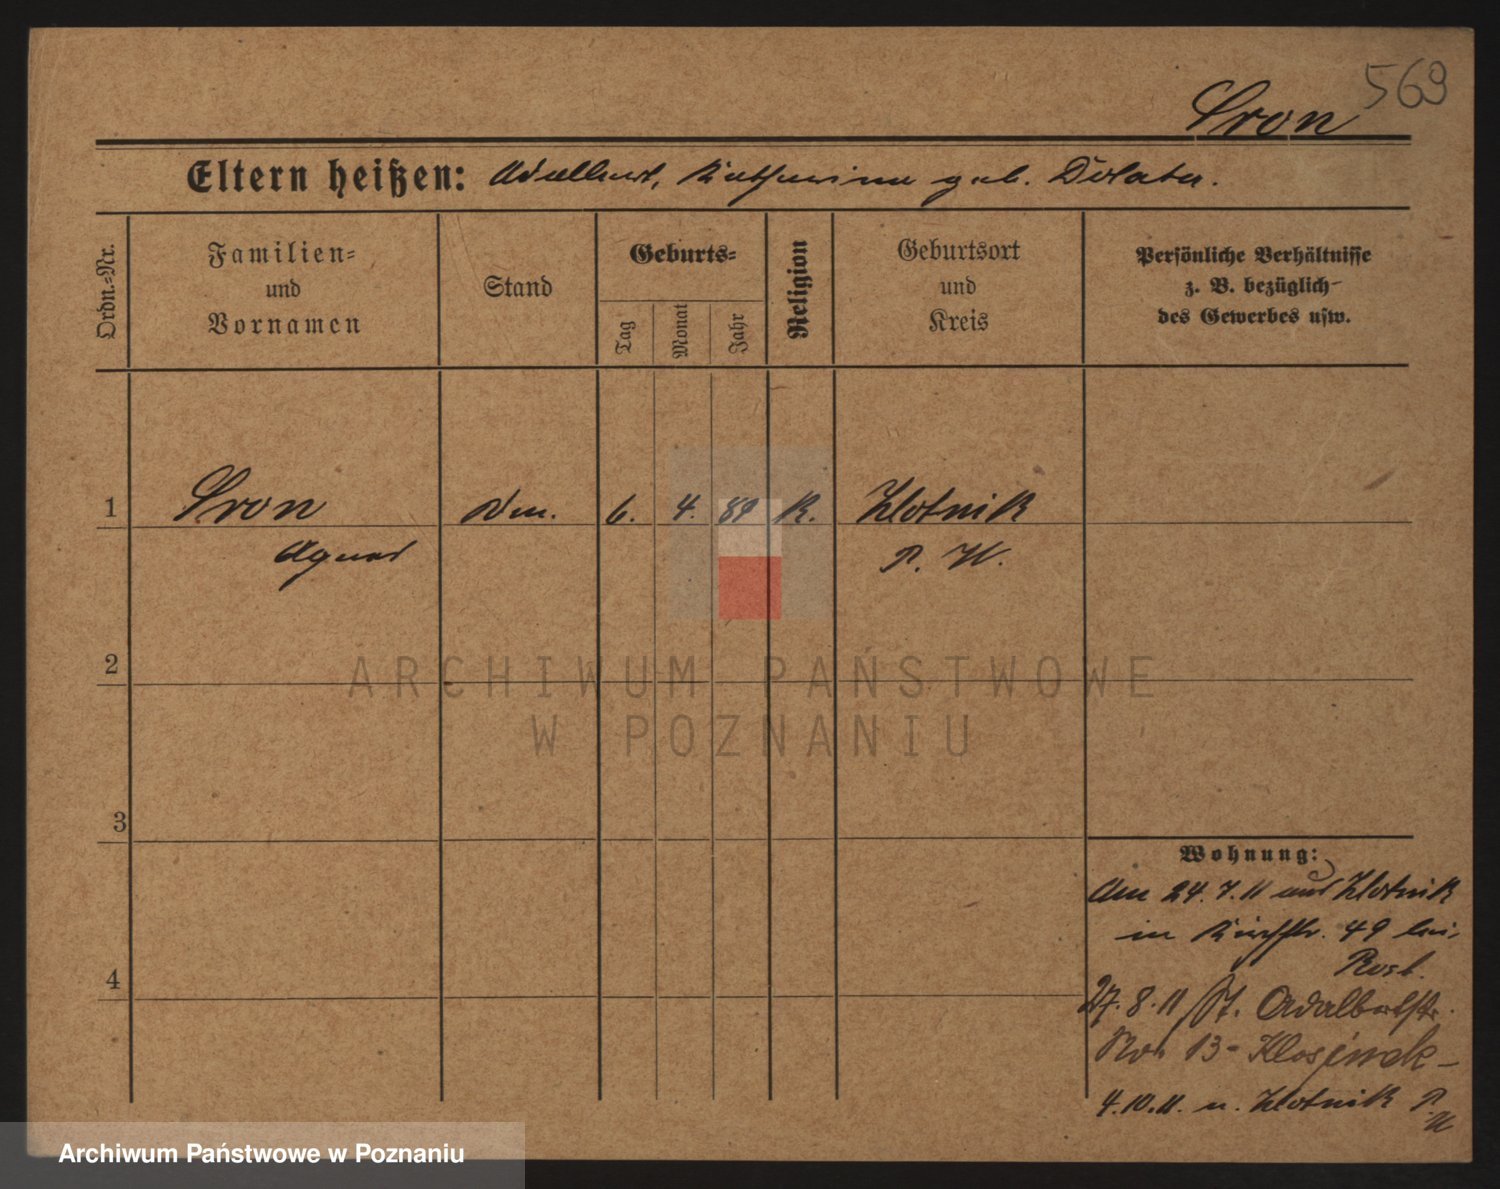 569
Sron
Eltern heißen: Adalbert, Katharina geb. Dolata.
Ordn.-Nr.
Familien-
und
Vornamen
Stand
Geburts-
Tag
Monat
Jahr
Religion
Geburtsort
und
Kreis
Persönliche Verhältnisse
z. B. bezüglich
des Gewerbes usw.
1
Sron
Agnes
6. 4. 89 K.
Zlotnik
P. W.
2
ARCHIWUM PAŃSTWOWE
W POZNANIU
3
Wohnung:
Am 24.7.11 aus Zlotnik
in Kirchstr. 49 bei
27.8.11 St. Adalbertstr.
No. 13-
4
4.10.11. n. Zlotnik P.
W
Archiwum Państwowe w Poznaniu